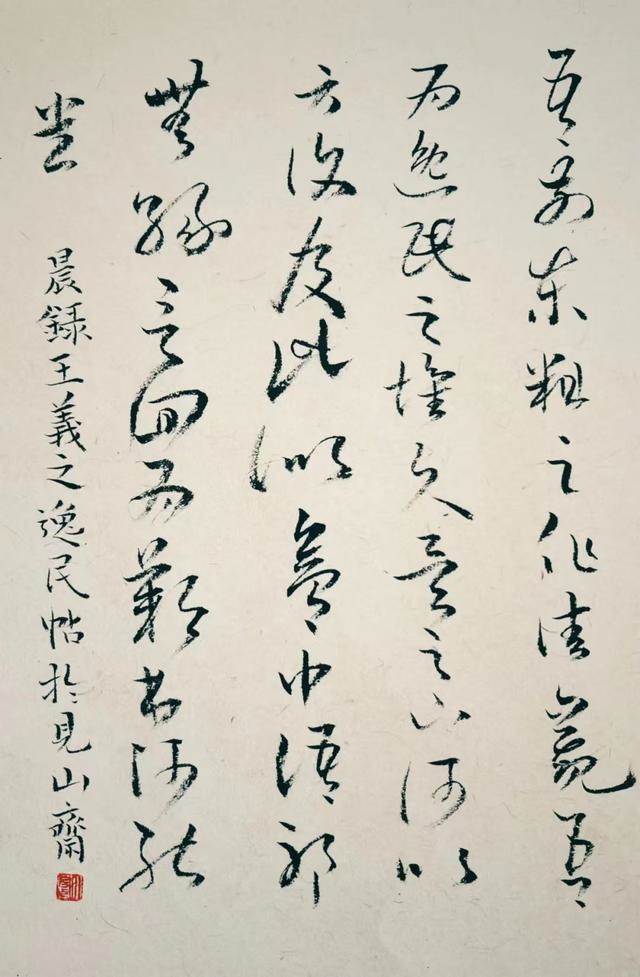 吾前東粗足作佳觀吾
為逸民之懷久矣足下何以
方復及此似夢中語耶
無緣言面為歎書何能
悉
晨録王羲之逸民帖於見山齋